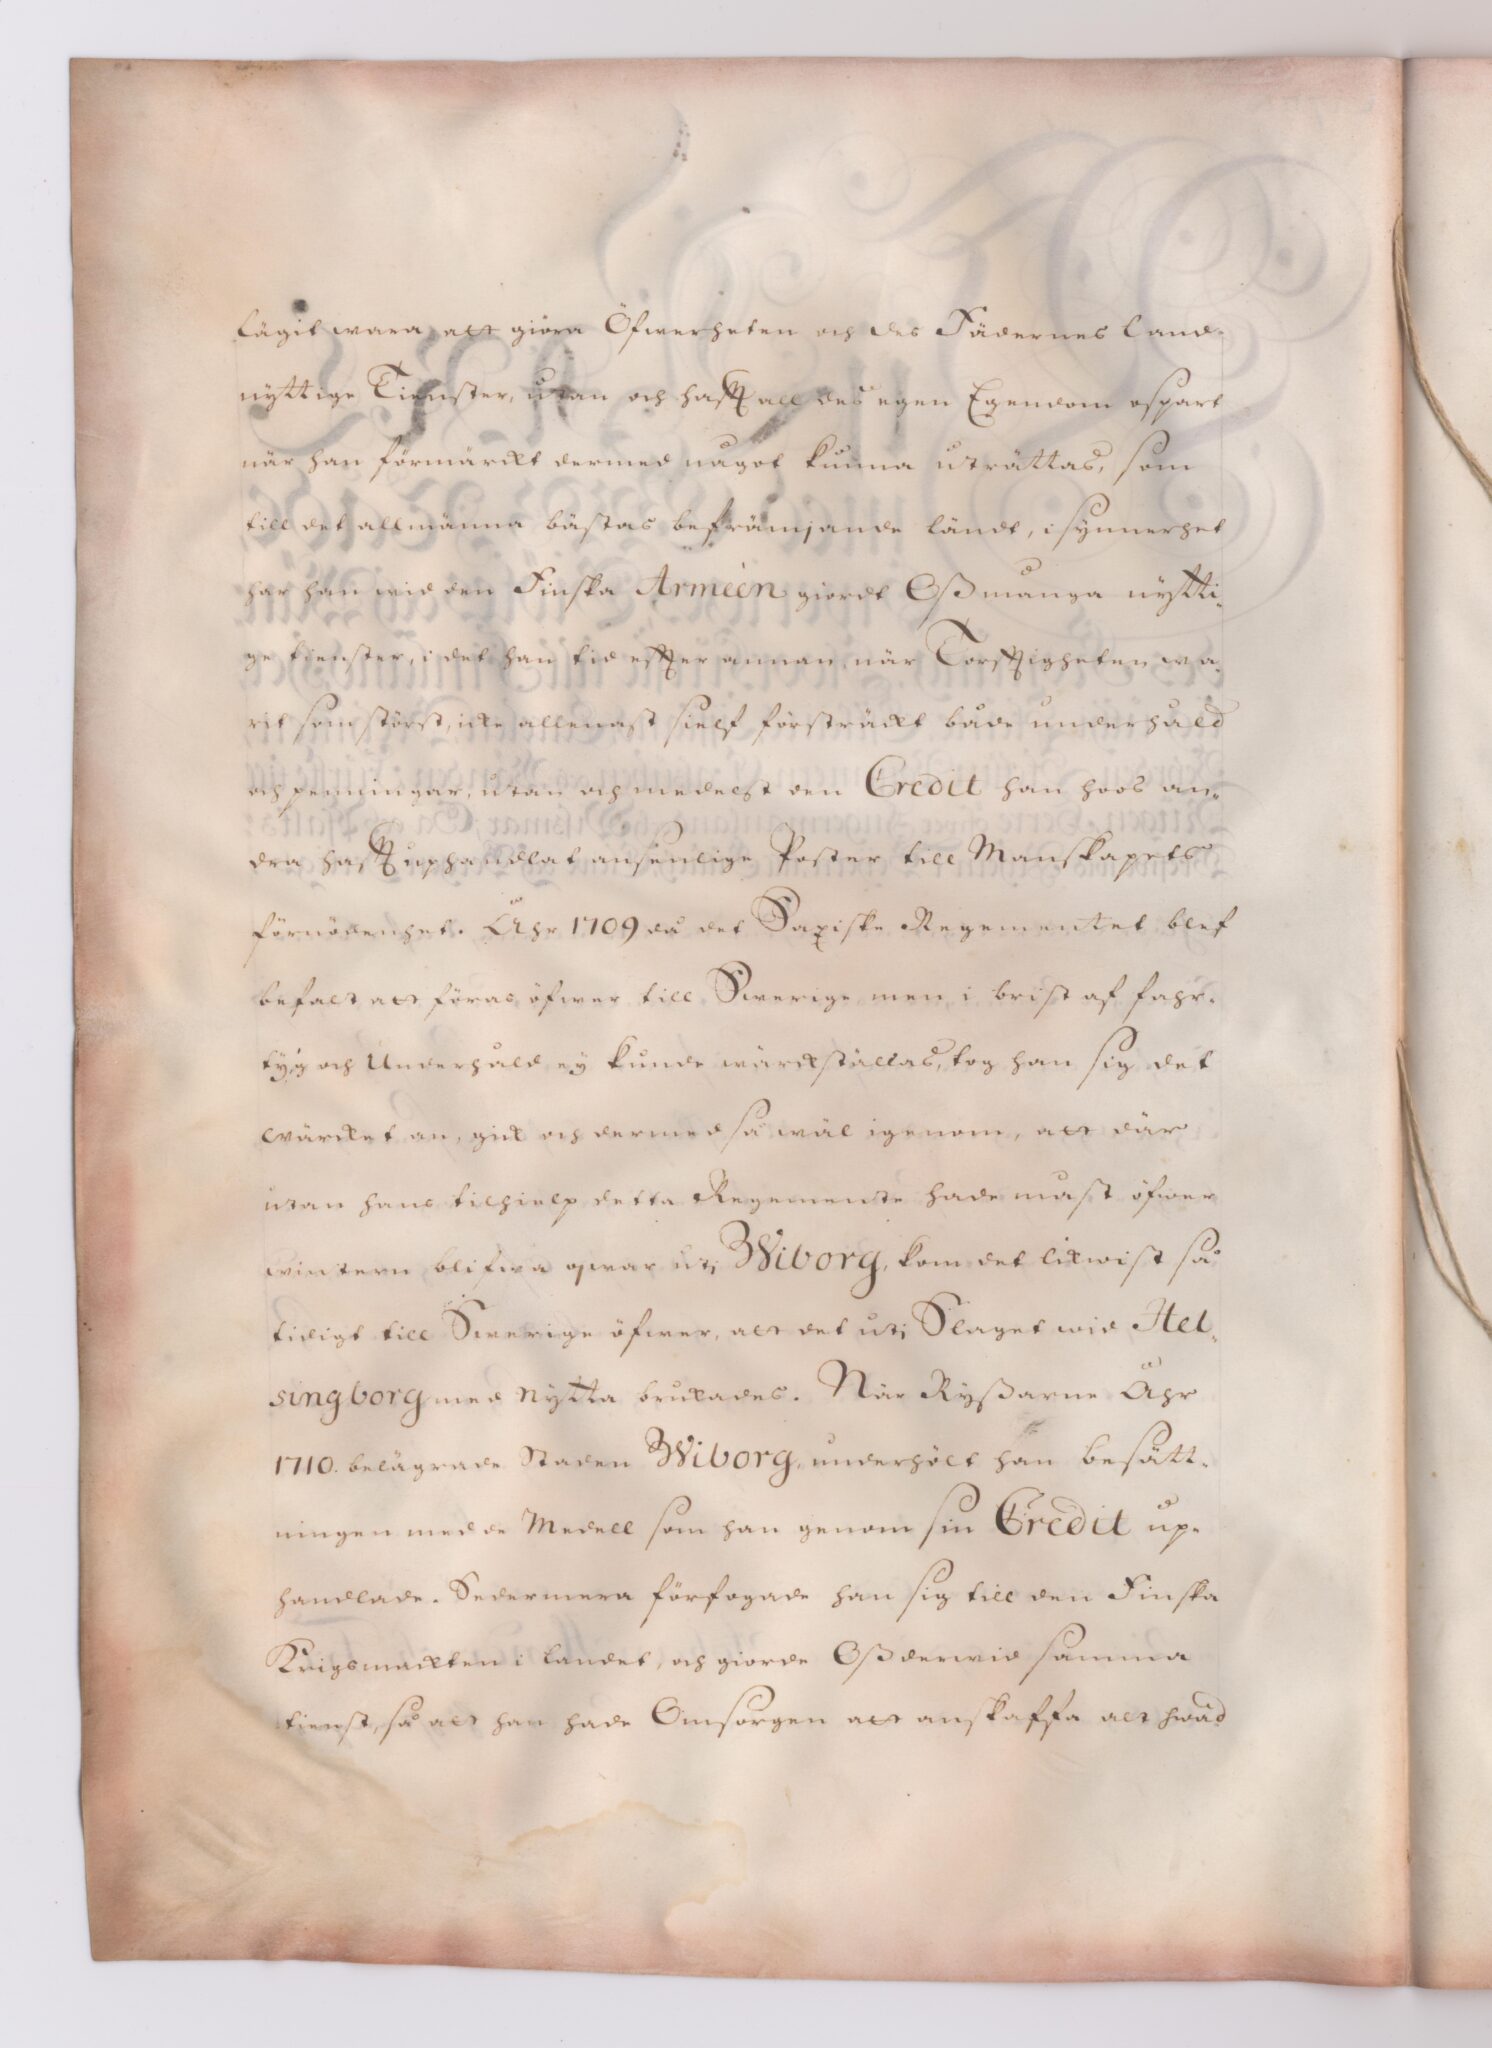 lägit wara, att giöra Öfwerheten och des Fädernes land-
nyttige Tienster, utan och hafft all des egen Egendom ospart
när han förmärckt dermed något kunna uträttas, som
till det allmänna bästas befrämjande ländt, i synnerhet
har han wid den Finska Arméen giordt Oß många nytti-
ge tienster, i det han tid effter annan, när Torfftigheten wa-
rit som störst, icke allenast sielf försträckt både underhåld
och penningar, utan och medelst den Credit han hoos an-
dra hafft uphandlat ansenlige Poster till Manskapets
förnödenhet. Åhr 1709 då det Saxiske Regementet blef
befalt att föras öfwer till Swerige men i brist af fahr-
tyg och Underhåld ey kunde wärckställas, tog han sig det
wärcket an, gick och dermed så wäl igenom, att där
utan hans tilhielp detta Regemente hade måst öfwer
wintern blifwa qwar uti Wiborg, kom det likwist så
tidigt till Swerige öfwer, att det uti Slaget wid Hel-
singborg med nytta brukades. När Ryßarne Åhr
1710. belägrade Staden Wiborg, underhölt han besätt-
ningen med de Medell som han genom sin Credit up-
handlade. Sedermera förfogade han sig till den Finska
Krigsmackten i landet, och giorde Oß derwid samma
tienst, så att han hade Omsorgen att anskaffa alt hwad